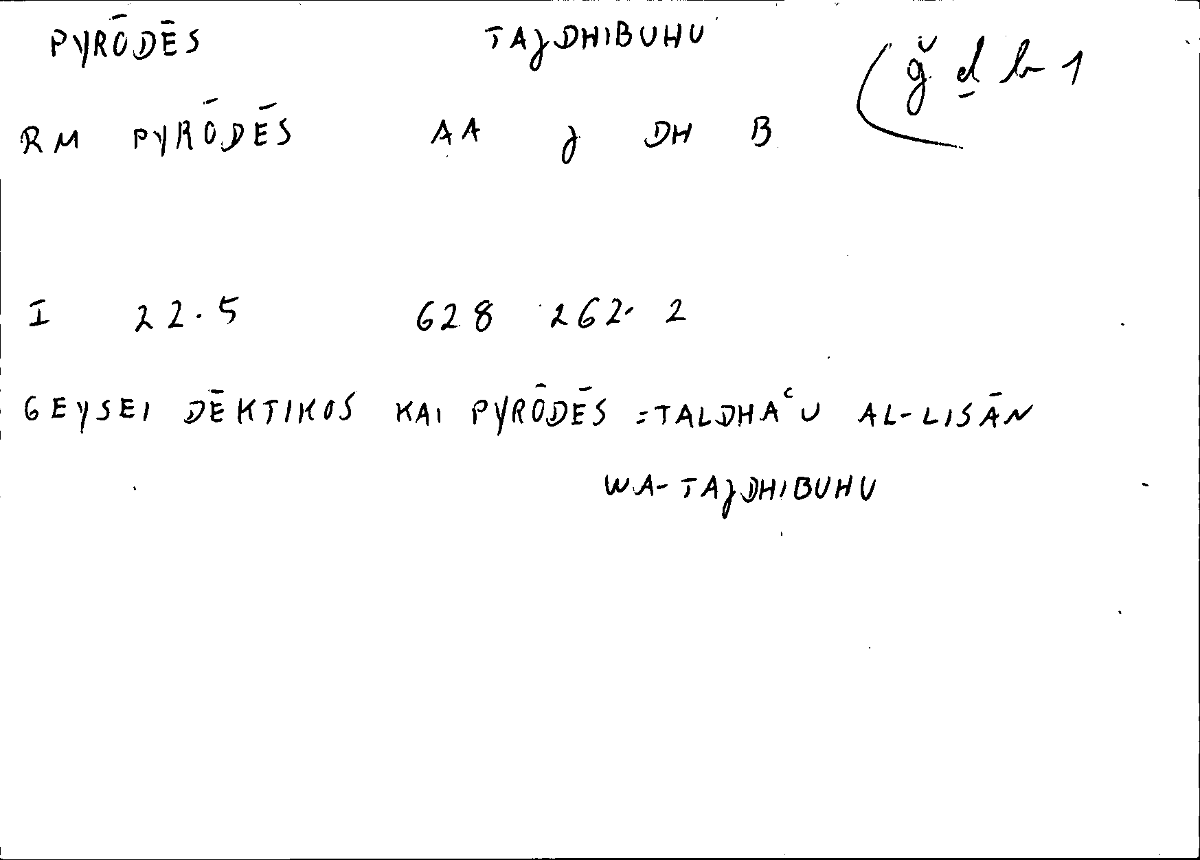 PYRŌDĒS TAJDHIBUHU ǧ ḏ b 1
RM PYRŌDĒS AA J DH B
I 22.5 628 262.2
GEYSEI DĒKTIKOS KAI PYRŌDĒS = TALDHAʿU AL-LISĀN
WA-TAJDHIBUHU